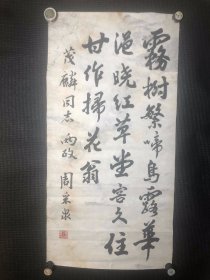 霧樹繁啼鳥露華
浥晓红草堂客久住
甘作掃花翁
茂麟同志 两政 周采泉